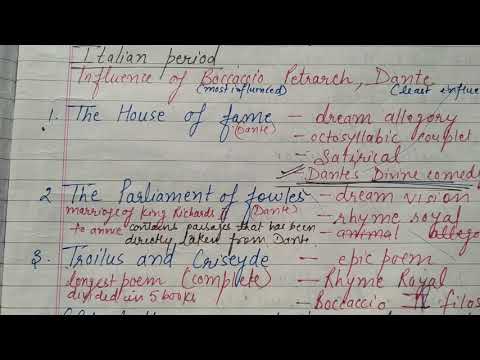 Italian period
Influence of Boccaccio Petrarch, Dante
(most influenced) (least
1. The House of fame - dream allegory
(Dante) - octosyllabic couplet
- satirical
Dante's Divine comedy
2 The Parliament of fowles - dream vision
marriage of King Richards II (Dante) - rhyme royal
to anne contains passages that has been - animal
directly taken from Dante.
3. Troilus and Criseyde - epic poem
longest poem (complete) - Rhyme Royal
divided in 5 books - Boccaccio Il filos